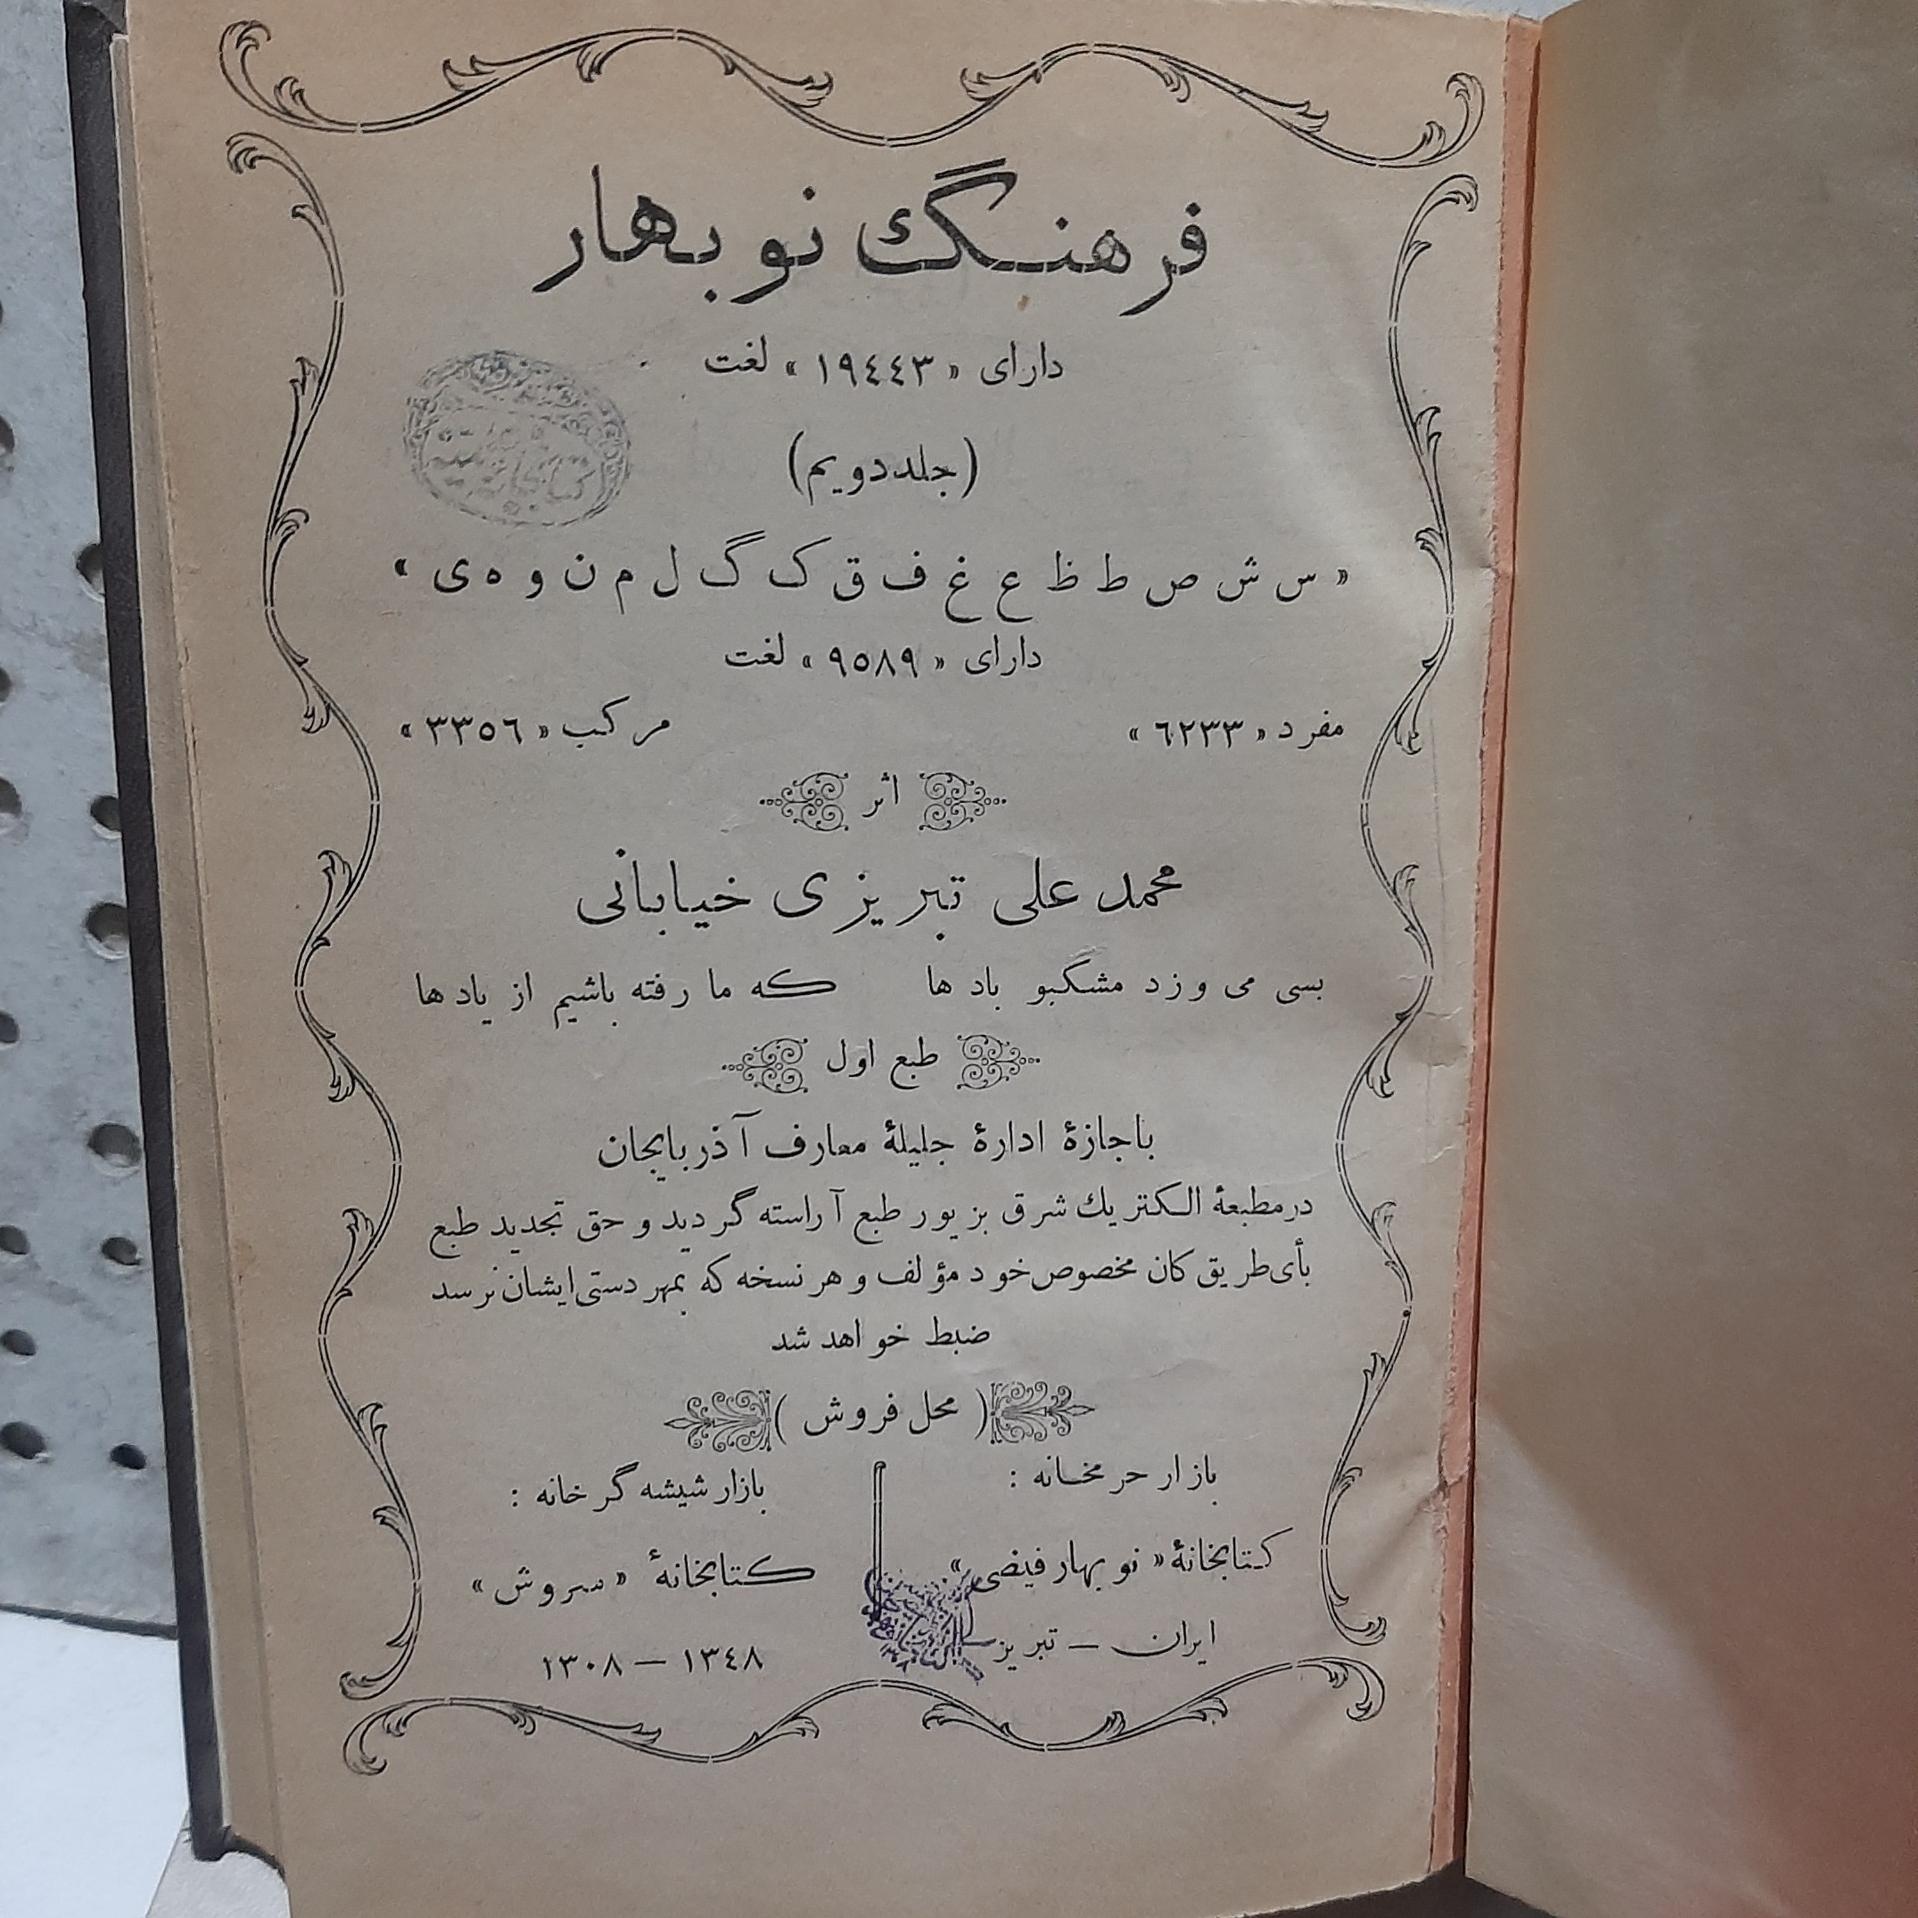 فرهنگ نو بهار
دارای « ١٩٤٤٣ » لغت
(جلد دویم)
« س ش ص ط ظ ع غ ف ق ک گ ل م ن و ه ی »
دارای « ٩٥٨٩ » لغت
مفرد « ٦٢٣٣ » مرکب « ٣٣٥٦ »
اثر
محمد علی تبریزی خیابانی
بسی می وزد مشگبو باد ها که ما رفته باشیم از یاد ها
طبع اول
باجازهٔ ادارهٔ جلیلهٔ معارف آذربایجان
در مطبعهٔ الکتریك شرق بزیور طبع آراسته گردید و حق تجدید طبع
بأی طریق کان مخصوص خود مؤلف و هر نسخه که بمهر دستی ایشان نرسد
ضبط خواهد شد
( محل فروش )
بازار حرمخانه :
کتابخانهٔ « نو بهار فیضی »
ایران — تبریز
بازار شیشه گر خانه :
کتابخانهٔ « سروش »
١٣٤٨ — ١٣٠٨